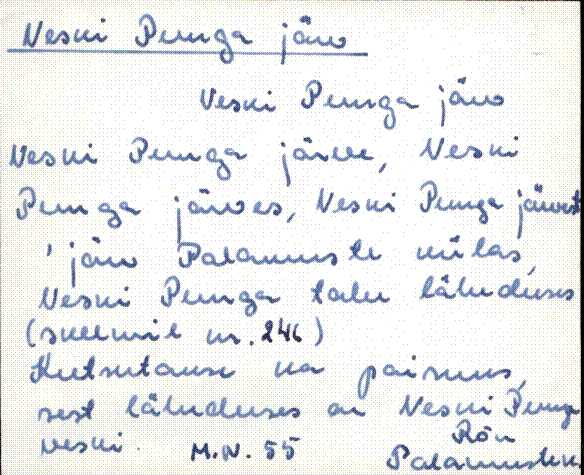 Veski Punga järv
Veski Punga järv
Veski Punga järve, Veski
Punga järves, Veski Punga järvest
'järv Palamuste külas,
Veski Punga talu läheduses
(skeemil nr. 246)
Kutsutakse ka paisuks,
sest läheduses on Veski Punga
veski. M.N. 55 Rõu
Palamuste k